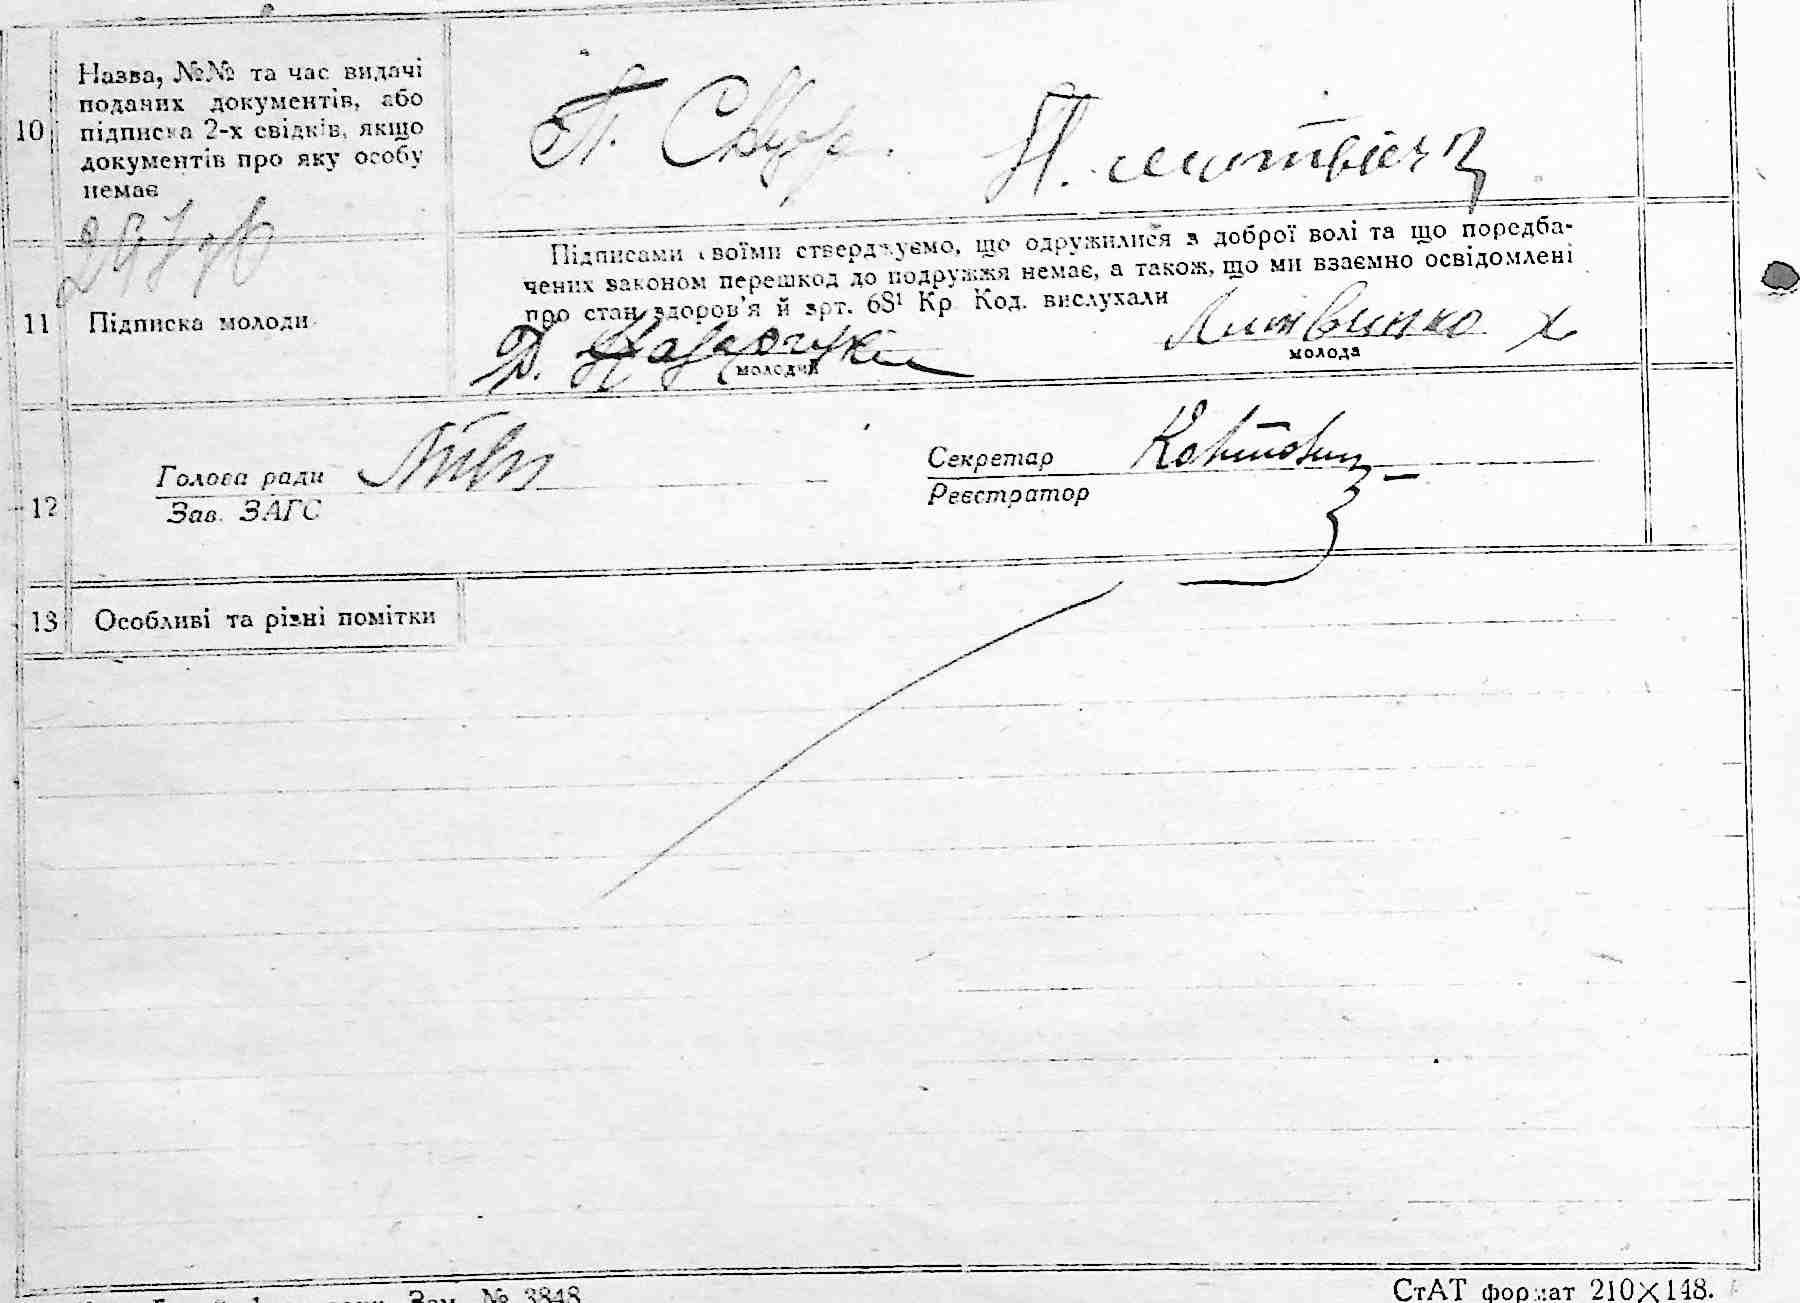 10
Назва, №№ та час видачі
поданих документів, або
підписка 2-х свідків, якщо
документів про яку особу
немає
П.
Н. Литвінец
11
Підписка молоди
Підписами своїми стверджуємо, що одружилися з доброї волі та що передба-
чених законом перешкод до подружжя немає, а також, що ми взаємно освідомлені
про стан здоров'я й арт. 68¹ Кр. Код. вислухали
Д.
молодий
Литвинко Х
молода
12
Голова ради
Зав. ЗАГС
Секретар
Реєстратор
13
Особливі та різні помітки
Зам. № 3848
СтАТ формат 210×148.